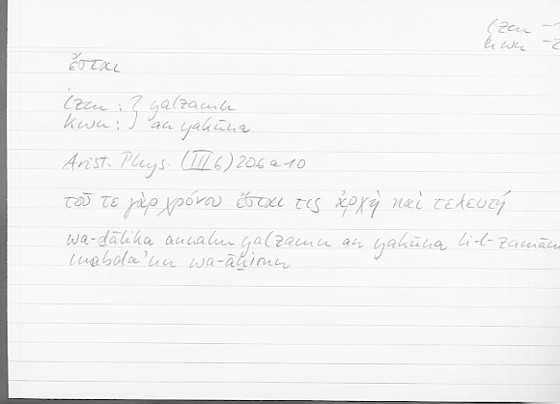 lzm -1
kwn -2
ἔσται
lzm : } yalzamu
kwn : } an yakūna
Arist. Phys. (III 6) 206a10
τοῦ τε γὰρ χρόνου ἔσται τις ἀρχὴ καὶ τελευτή
wa-ḏālika annahu yalzamu an yakūna li-l-zamān
mabda'un wa-āḫirun